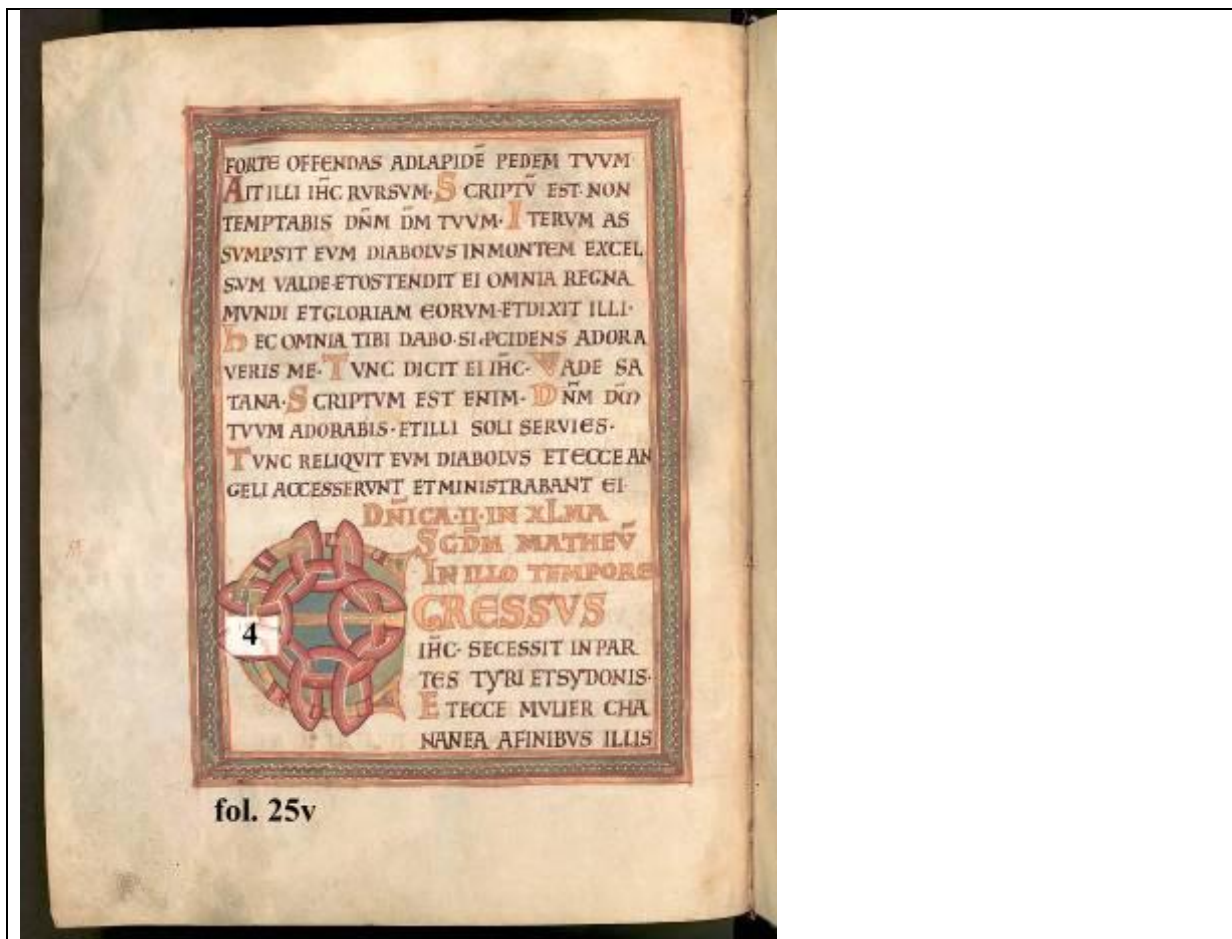 FORTE OFFENDAS ADLAPIDE̅ PEDEM TVVM·
AIT ILLI IH̅C RVRSVM· SCRIPTV̅ EST· NON
TEMPTABIS DN̅M DM̅ TVVM· ITERVM AS
SVMPSIT EVM DIABOLVS INMONTEM EXCEL
SVM VALDE· ETOSTENDIT EI OMNIA REGNA
MVNDI ETGLORIAM EORVM· ETDIXIT ILLI·
HEC OMNIA TIBI DABO· SI PCIDENS ADORA
VERIS ME· TVNC DICIT EI IH̅C· VADE SA
TANA· SCRIPTVM EST ENIM· DN̅M DM̅
TVVM ADORABIS· ETILLI SOLI SERVIES·
TVNC RELIQVIT EVM DIABOLVS ETECCE AN
GELI ACCESSERVNT ETMINISTRABANT EI·
DN̅ICA·II·IN XLMA
SCDM̅ MATHEV̅
IN ILLO TEMPORE
EGRESSVS
4
IH̅C· SECESSIT IN PAR
TES TYRI ETSYDONIS·
ETECCE MVLIER CHA
NANEA AFINIBVS ILLIS
fol. 25v